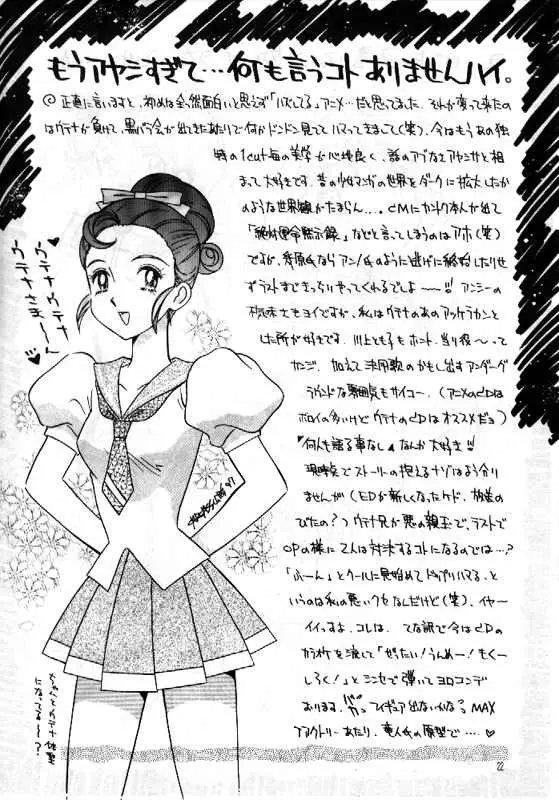 もうアヤシすぎて…何も言うコトありませんハイ。
◎正直に言いますと、初めは全然面白いと思えず「ハズしてる」アニメ…だと思ってました。それが変って来たの
はウテナが負けて、黒バラ会が出てきたあたりで何かドンドン見ててハマってきまして(笑)、今はもうあの独
特の1cut毎の美学が心地良く、話のアブなさアヤシサと相
まって大好きです。昔の少女マンガの世界をダークに拡大したか
のような世界観がたまらん…。CMにカントク本人が出て
「絶対運命黙示録」などと言ってしまうのはアホ(笑)
ですが、幾原氏ならアンノ氏のように逃げに終始したりせ
ずラストまできっちりやってくれるでしょ〜〜!!アンシーの
ヨイですが、私はウテナのあのアッケラカンと
した所が好きです。川上とも子もホント、当り役〜って
カンジ。加えて決闘歌のかもし出すアンダーグ
ラウンドな雰囲気もサイコー。(アニメのCDは
ボロイの多いけどウテナのCDはオススメだョ)
何人も語る事なし なんか大好き!!
現時点でストーリーの抱えるナゾはよう分り
ませんが(EDが新しくなったケド、
びたの?)ウテナ兄が悪の親玉で、ラストで
OPの様に2人は対決するコトになるのでは…?
「ふーん」とクールに見始めてドップリハマる、と
いうのは私の悪いクセなんだけど(笑)、イヤー
イイっすよ、コレは。 てな訳で今はCDの
カラオケを流して「ぜったい!うんめー!もくー
しろく!」とシンセで弾いてヨロコンデ
おります。フィギュア出ないかな? MAX
ファクトリーあたり、竜人氏の原型で……♥
ウテナウテナ
ウテナさま〜〜ん
'97
ちょっとウテナ体型
になってる〜?
22